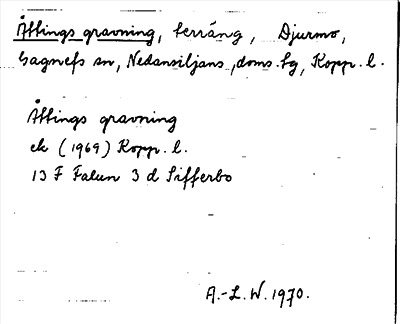 Åttings gravning, terräng, Djurmo,
Gagnefs sn, Nedansiljans, doms.hg, Kopp. l.
Åttings gravning
ek (1969) Kopp. l.
13 F Falun 3 d Sifferbo
A.-L. W. 1970.